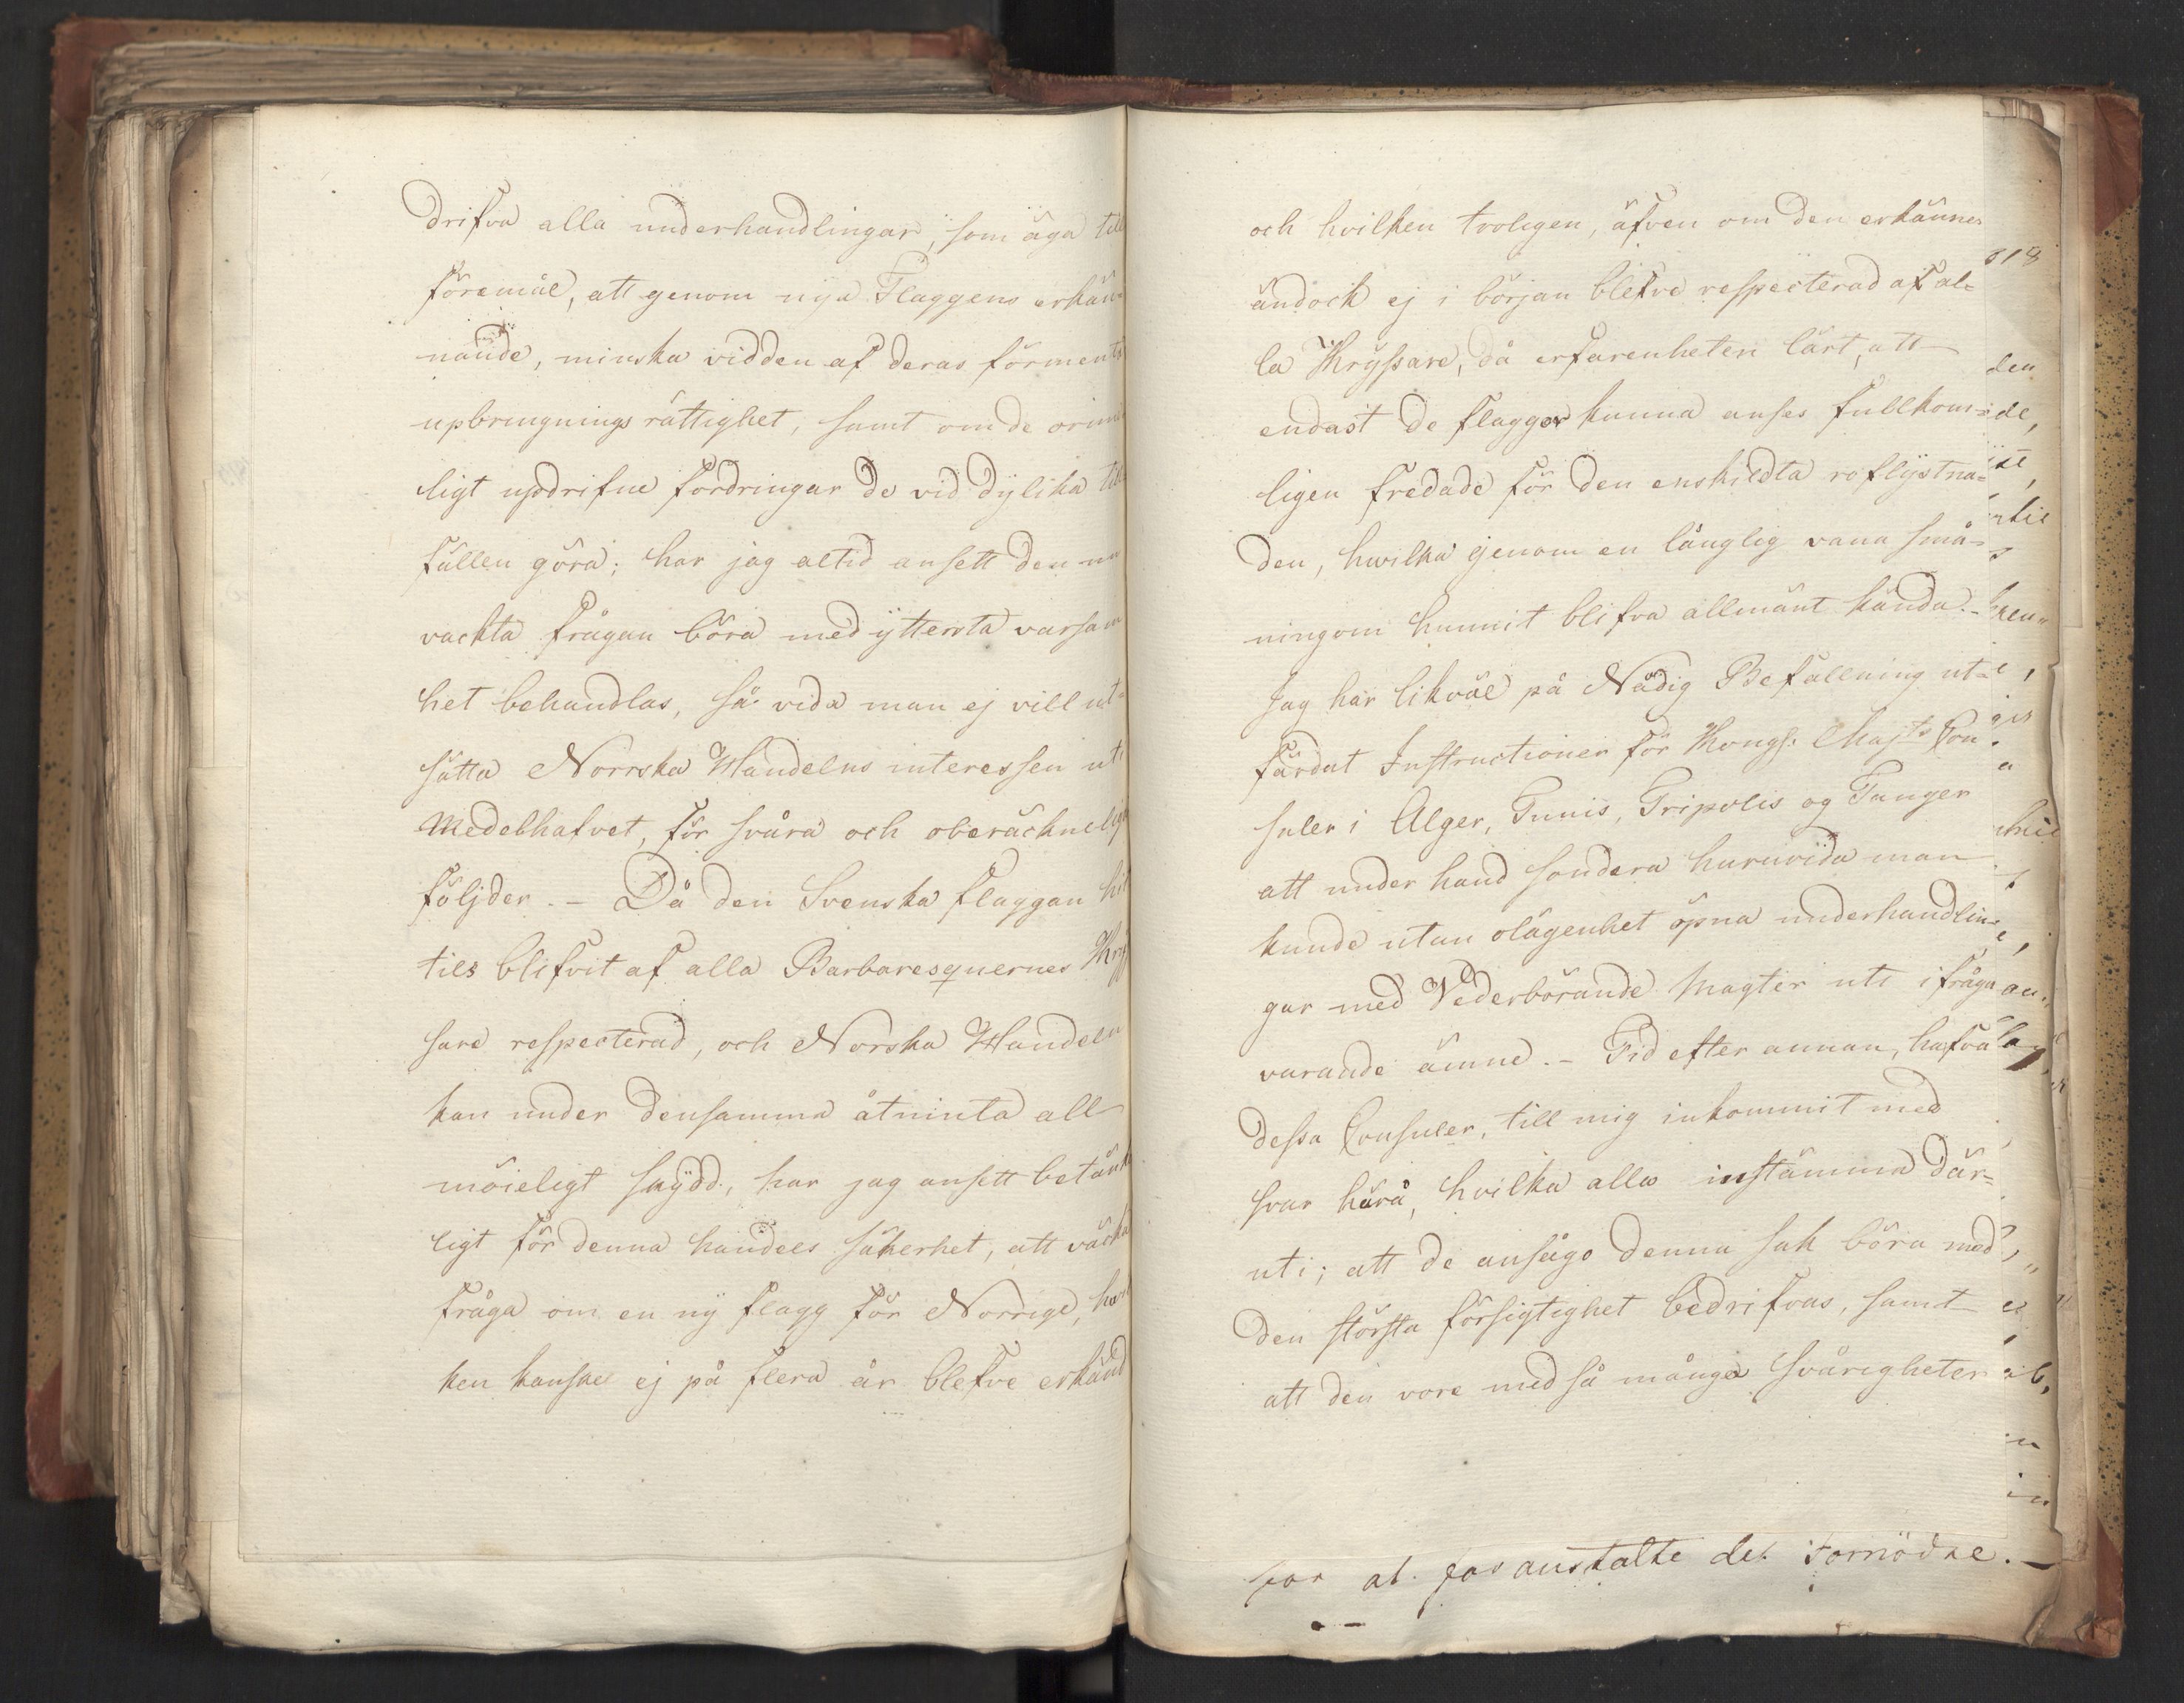 drifva alla underhandlingar, som äga till
föremål, att genom nya Flaggens erkän-
nande, minska vidden af deras förmenta
upbringnings rättighet, samt om de orim
ligt updrifne fordringar de vid dylika till
fällen göra; har jag altid ansett den nu
väckta frågan böra med yttersta varsam
het behandlas, så vida man ej vill ut-
sätta Norrska Handelns interessen uti
Medelhafvet, för svåra och oberäckneliga
följder. - Då den Svenska flaggan hit
tils blifvit af alla Barbaresquernes Krys
sare respecterad, och Norska Handeln
kan under densamma åtninta all
möieligt skydd, har jag ansett betänk
ligt för denna handels säkerhet, att väcka
fråga om en ny flagg för Norrige, hvil
ken kanske ej på flera år blefve erkänd
och hvilken troligen, äfven om den erkännes
ändock ej i början blefve respecterad af al-
la Kryssare, då erfarenheten lärt, att
endast de flaggor kunna anses fullkom-
ligen fredade för den enskildta roflystna-
den, hvilka genom en långlig vana små-
ningom hunnit blifva allmänt kända. -
Jag har likväl på Nådig Befallning ut-
färdat Instructioner för Kongl: Majts Con
suler i Alger, Tunis, Tripolis og Tanger
att under hand sondera huruvida man
kunde utan olägenhet öpna underhandlin-
gar med Vederbörande Magter uti ifråga
varande ämne. - Tid efter annan, hafva
dessa Consuler, till mig inkommit med
svar härå, hvilka alla instämma där-
uti; att de ansågo denna sak böra med
den största försigtighet bedrifvas, samt
att den vore med så många Svårigheter
318
den
de,
for at foranstalte det Fornödne. -